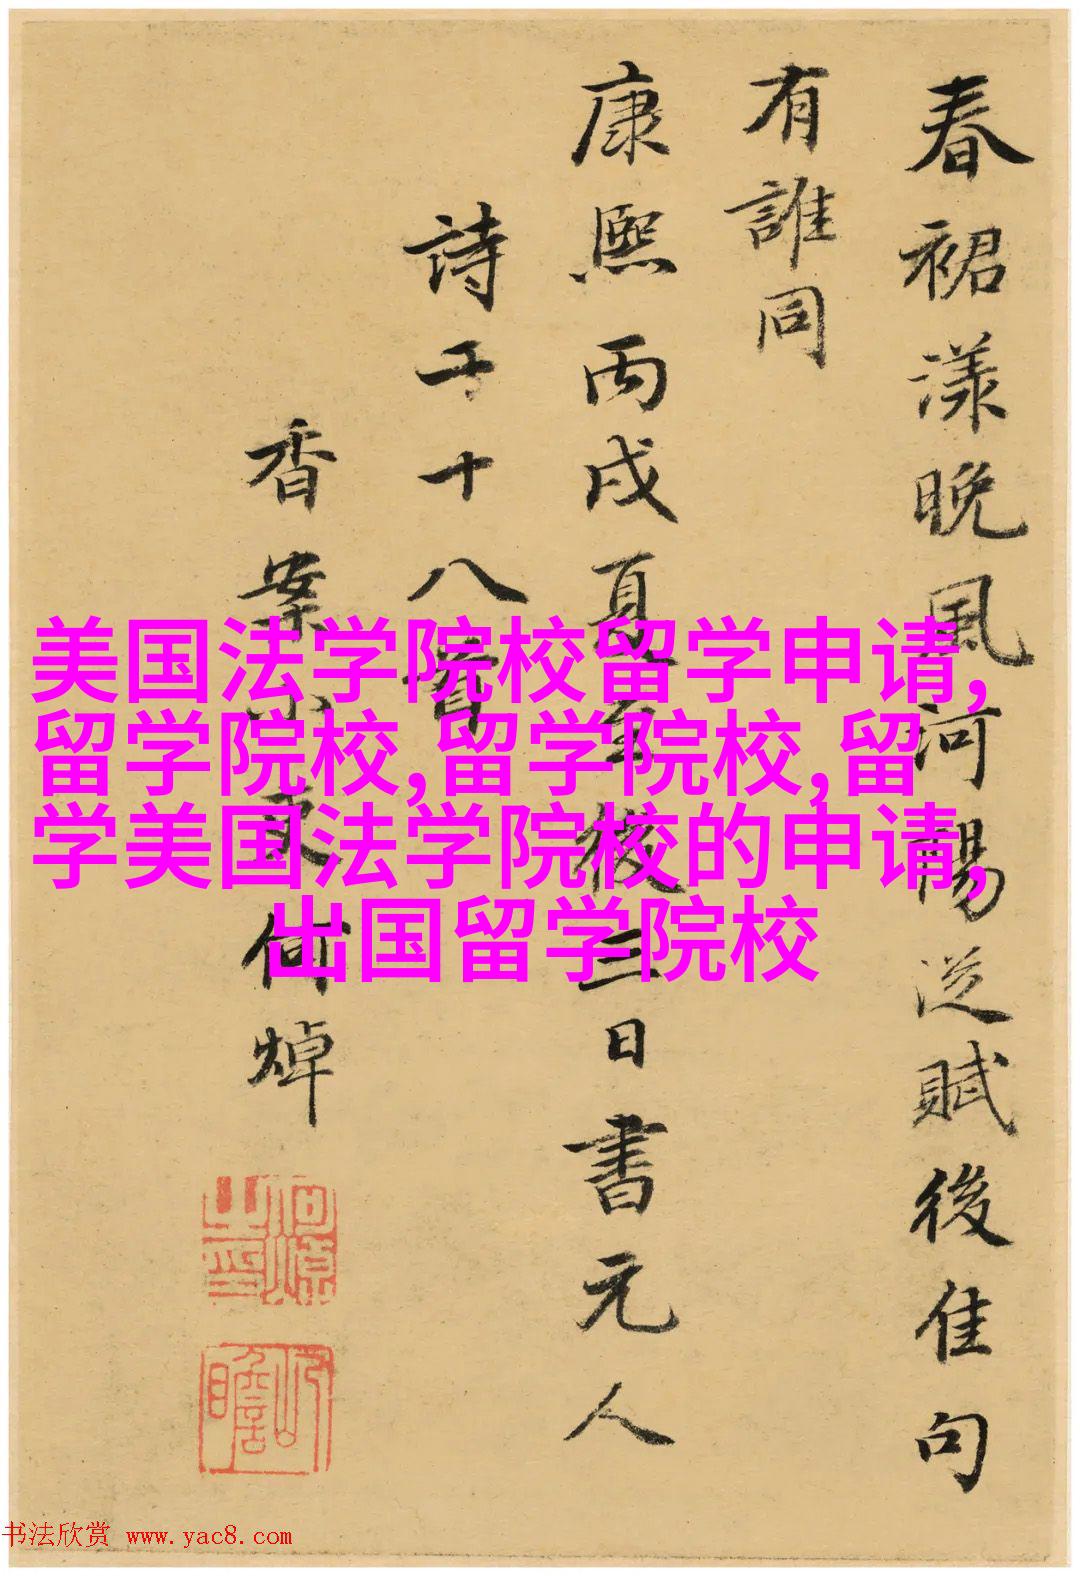 春裙漾晚風河陽從賦後佳句
有誰同
康熙丙戌夏至後三日書元人
詩五十八首
香案小吏何焯
美国法学院校留学申请,
留学院校,留学院校,留
学美国法学院校的申请,
出国留学院校
何焯之印
屺瞻
书法欣赏 www.yac8.com